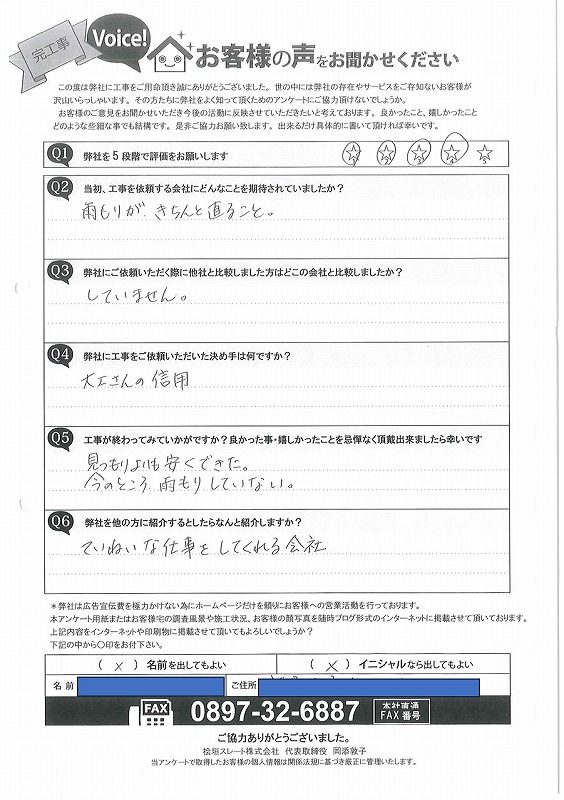 完工事
Voice!
お客様の声をお聞かせください
この度は弊社に工事をご用命頂き誠にありがとうございました。世の中には弊社の存在やサービスをご存知ないお客様が
沢山いらっしゃいます。その方たちに弊社をよく知って頂くためのアンケートにご協力頂けないでしょうか。
お客様のご意見をお聞かせいただき今後の活動に反映させていただきたいと考えております。良かったこと、嬉しかったこと
どのような些細な事でも結構です。是非ご協力お願い致します。出来るだけ具体的に書いて頂ければ幸いです。
Q1 弊社を5段階で評価をお願いします
1 2 3 4 5
Q2 当初、工事を依頼する会社にどんなことを期待されていましたか?
雨もりが、きちんと直ること。
Q3 弊社にご依頼いただく際に他社と比較しました方はどこの会社と比較しましたか?
していません。
Q4 弊社に工事をご依頼いただいた決め手は何ですか?
大工さんの信用
Q5 工事が終わってみていかがですか?良かった事・嬉しかったことを忌憚なく頂戴出来ましたら幸いです
見つもりよりも安くできた。
今のところ、雨もりしていない。
Q6 弊社を他の方に紹介するとしたらなんと紹介しますか?
ていねいな仕事をしてくれる会社
*弊社は広告宣伝費を極力かけない為にホームページだけを頼りにお客様への営業活動を行っております。
本アンケート用紙またはお客様宅の調査風景や施工状況、お客様の顔写真を随時ブログ形式のインターネットに掲載させて頂いております。
上記内容をインターネットや印刷物に掲載させて頂いてもよろしいでしょうか?
下記の中から〇印をお付下さい。
( × ) 名前を出してもよい ( × ) イニシャルなら出してもよい
名前 ご住所
FAX 0897-32-6887 本社直通 FAX番号
ご協力ありがとうございました。
桧垣スレート株式会社 代表取締役 岡添敦子
当アンケートで取得したお客様の個人情報は関係法規に基づき厳正に管理いたします。